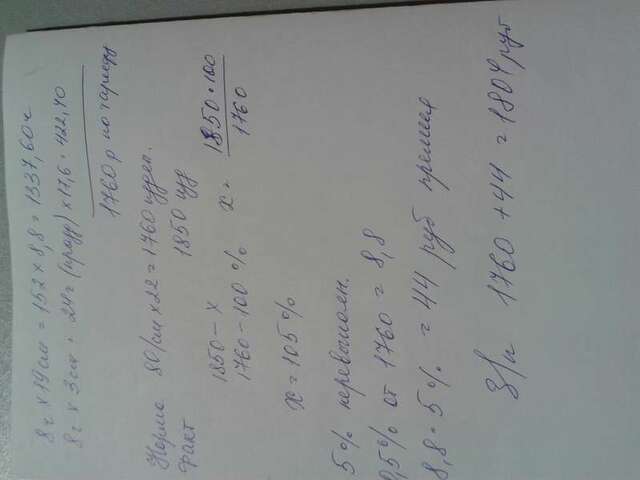 8 ч x 19 см = 152 x 8,8 = 1337,60 ч
8 ч x 3 см = 24 = (празд) x 17,6 = 422,40
1760 р по тарифу
Норма 80/см x 22 = 1760 издел.
Факт 1850 изд
1850 - x
1760 - 100% x = 1850 * 100 / 1760
x = 105%
5% перевыполн.
0,5% от 1760 = 8,8
8,8 * 5% = 44 руб премия
З/п 1760 + 44 = 1804 руб